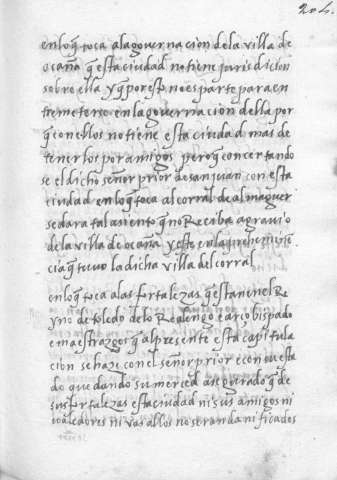 204.
en lo q̃ toca a la governaçion de la villa de
ocaña q̃ esta ciudad no tiene jurisdiction
sobre ella y q̃ por esto no es parte para en
tremeterse en la governaçion della por
q̃ con ellos no tiene esta ciudad mas de
tenerlos por amigos pero q̃ concertando
se el dicho señor prior de san juan con esta
ciudad en lo q̃ toca al corral de almaguer
se dara tal asiento q̃ no Reciba agravio
de la villa de ocaña y este en la prehemine
cia q̃ tuvo la dicha villa del corral
en lo q̃ toca a las fortalezas q̃ estan en el Re
yno de toledo de lo Realengo e arçobispado
e maestrazgos q̃ al presente esta capitula
cion se haze con el señor prior e con vuesta
do que dando su merced asegurado q̃ de
sus fortalezas esta ciudad ni sus amigos ni
valedores ni vasallos no seran danificados